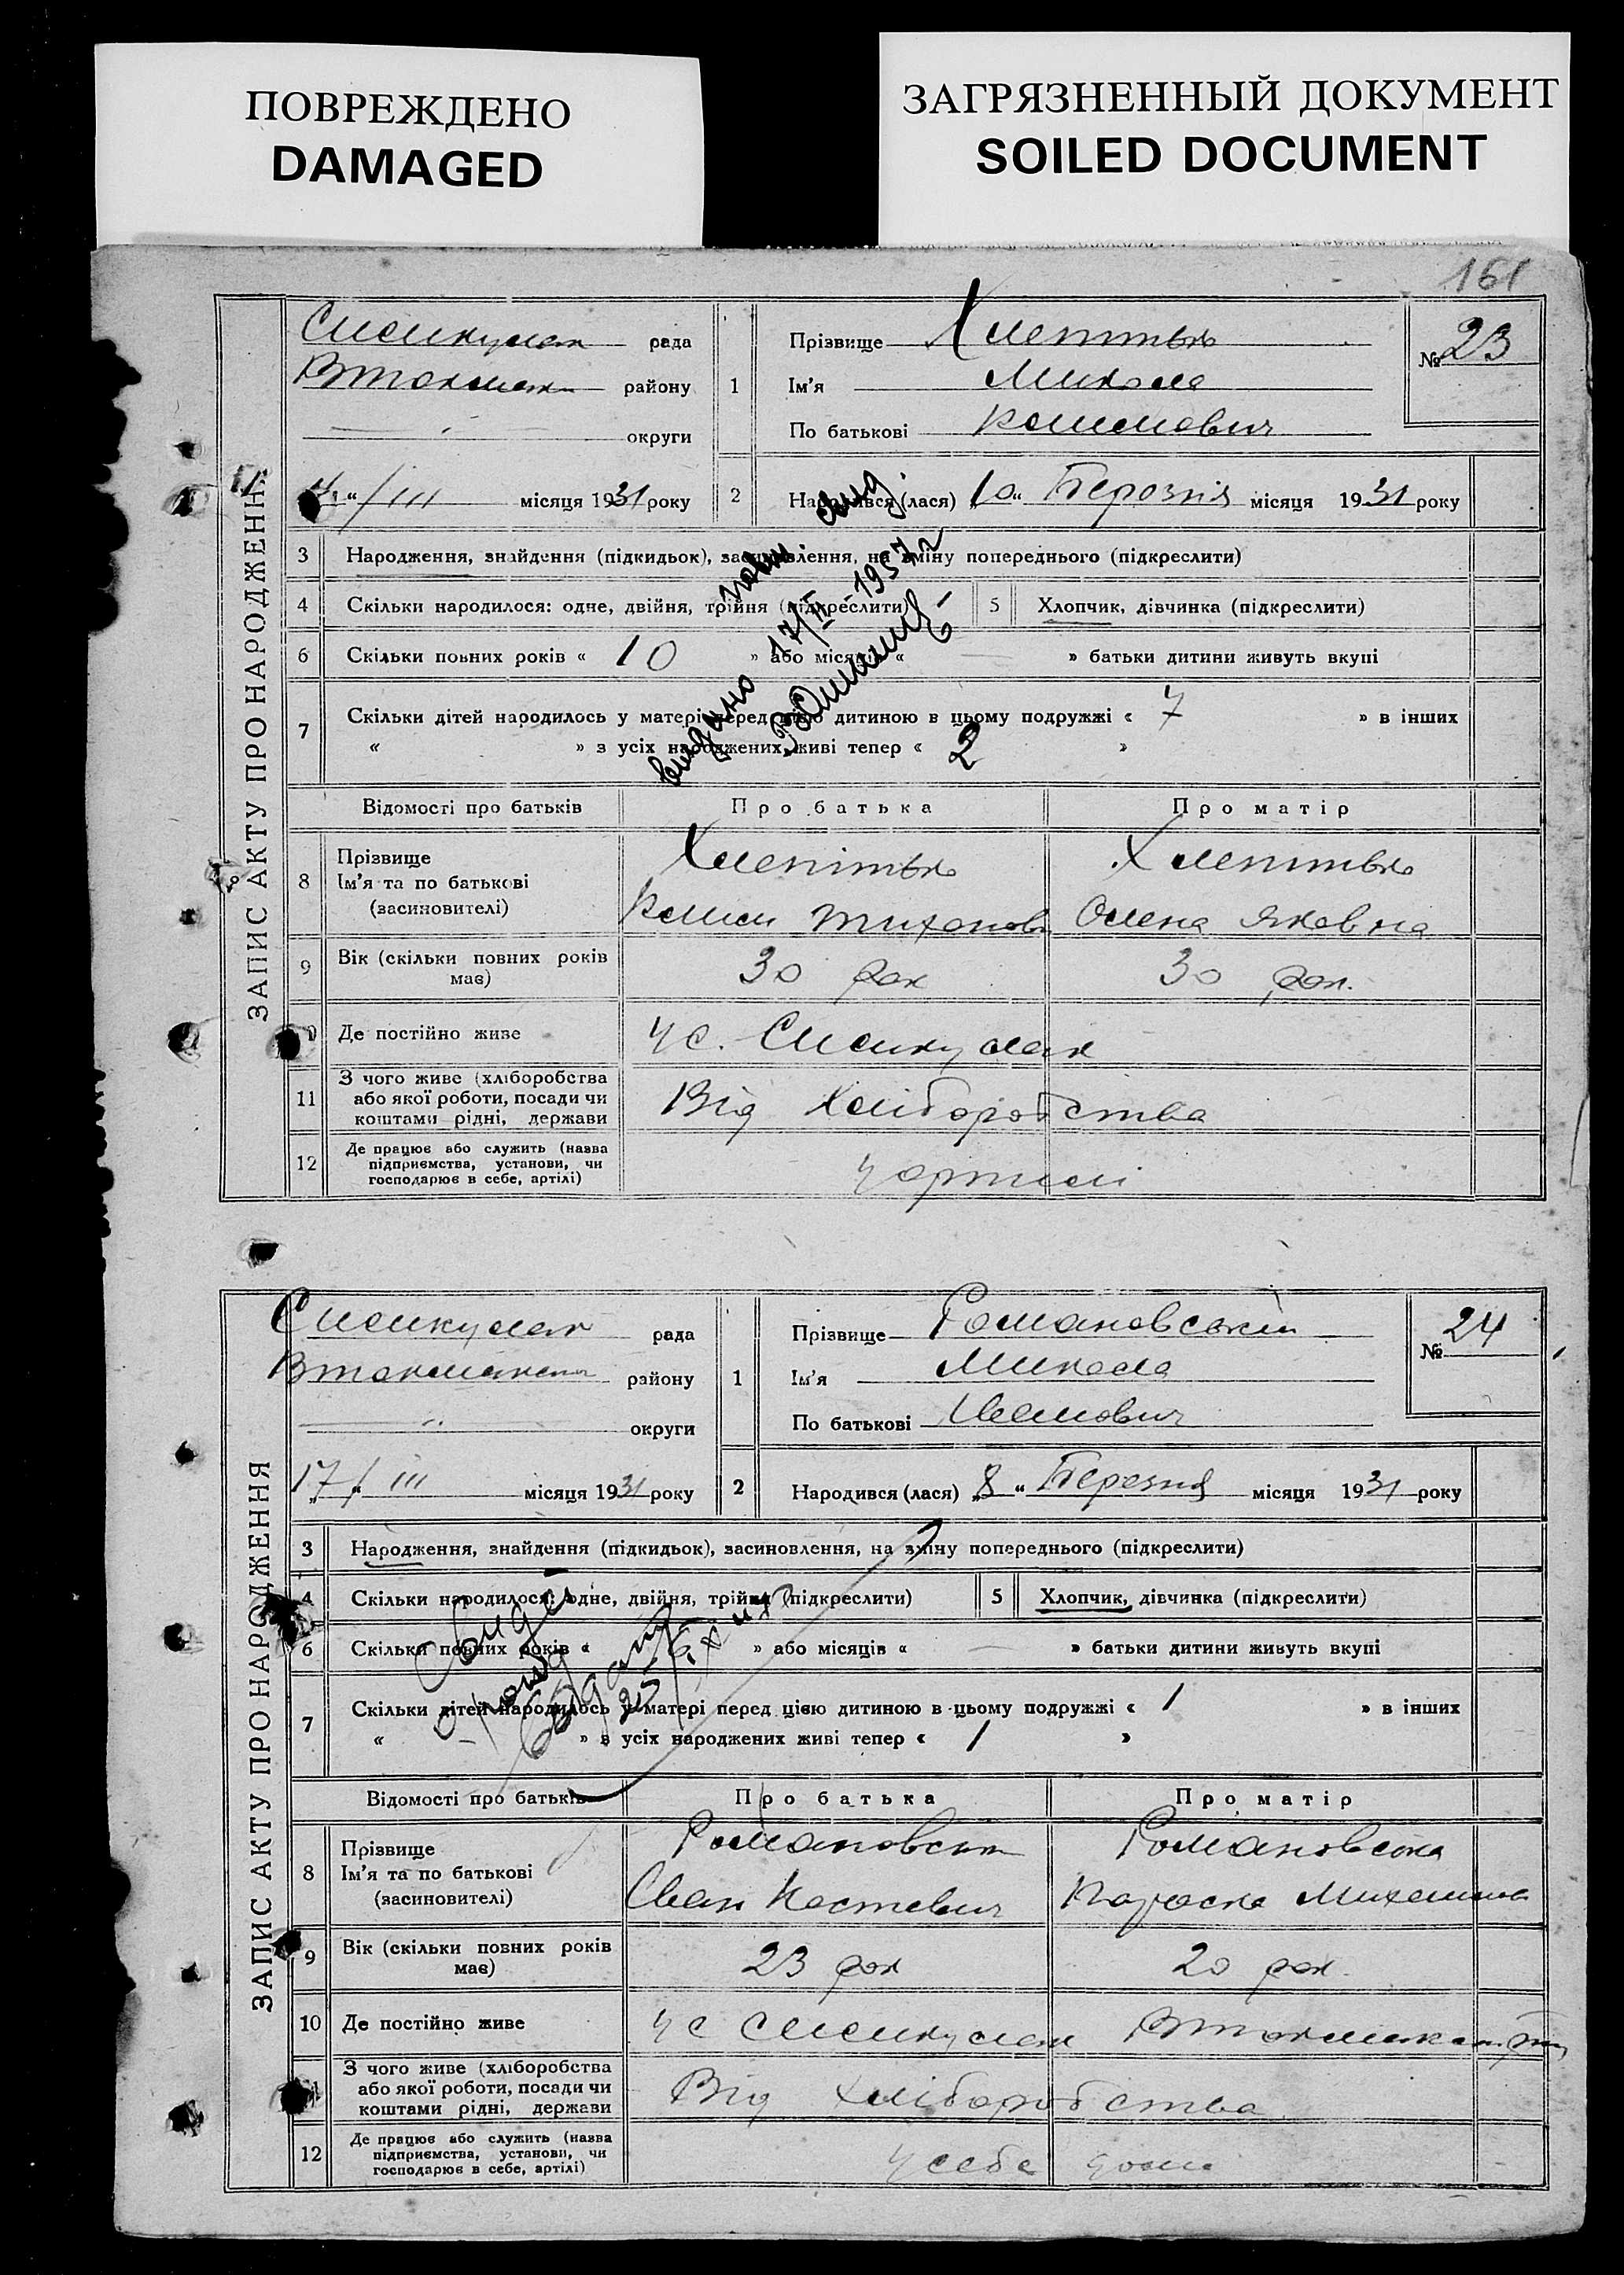 ПОВРЕЖДЕНО
DAMAGED
ЗАГРЯЗНЕННЫЙ ДОКУМЕНТ
SOILED DOCUMENT
161
ЗАПИС АКТУ ПРО НАРОДЖЕННЯ
рада
району
округи
11/III місяця 1931 року
1
Прізвище
Ім'я Микола
По батькові
№ 23
2
Народився (лася) „10“ Березня місяця 1931 року
3 Народження, знайдення (підкидьок), засиновлення, на зміну попереднього (підкреслити)
4 Скільки народилося: одне, двійня, трійня (підкреслити)
5 Хлопчик, дівчинка (підкреслити)
6 Скільки повних років « 10 » або місяців « — » батьки дитини живуть вкупі
7 Скільки дітей народилось у матері перед цією дитиною в цьому подружжі « 7 » в інших
« » з усіх народжених живі тепер « 2 »
видано 17/II-1957 р
Відомості про батьків
Про батька
Про матір
8 Прізвище
Ім'я та по батькові
(засиновителі)
Олена Яковна
9 Вік (скільки повних років має)
30 рок
30 рок.
10 Де постійно живе
у с.
11 З чого живе (хліборобства
або якої роботи, посади чи
коштами рідні, держави
Від хліборобства
12 Де працює або служить (назва
підприємства, установи, чи
господарює в себе, артілі)
у артілі
ЗАПИС АКТУ ПРО НАРОДЖЕННЯ
рада
району
округи
„17“/III місяця 1931 року
1
Прізвище Романовський
Ім'я Микола
По батькові Іванович
№ 24
2
Народився (лася) „8“ Березня місяця 1931 року
3 Народження, знайдення (підкидьок), засиновлення, на зміну попереднього (підкреслити)
4 Скільки народилося: одне, двійня, трійня (підкреслити)
5 Хлопчик, дівчинка (підкреслити)
6 Скільки повних років « » або місяців « — » батьки дитини живуть вкупі
7 Скільки дітей народилось у матері перед цією дитиною в цьому подружжі « 1 » в інших
« » з усіх народжених живі тепер « 1 »
Відомості про батьків
Про батька
Про матір
8 Прізвище
Ім'я та по батькові
(засиновителі)
Романовський
Романовська
Іван
Параска
9 Вік (скільки повних років має)
23 рок
20 рок
10 Де постійно живе
у с
11 З чого живе (хліборобства
або якої роботи, посади чи
коштами рідні, держави
Від хліборобства
12 Де працює або служить (назва
підприємства, установи, чи
господарює в себе, артілі)
у себе дома